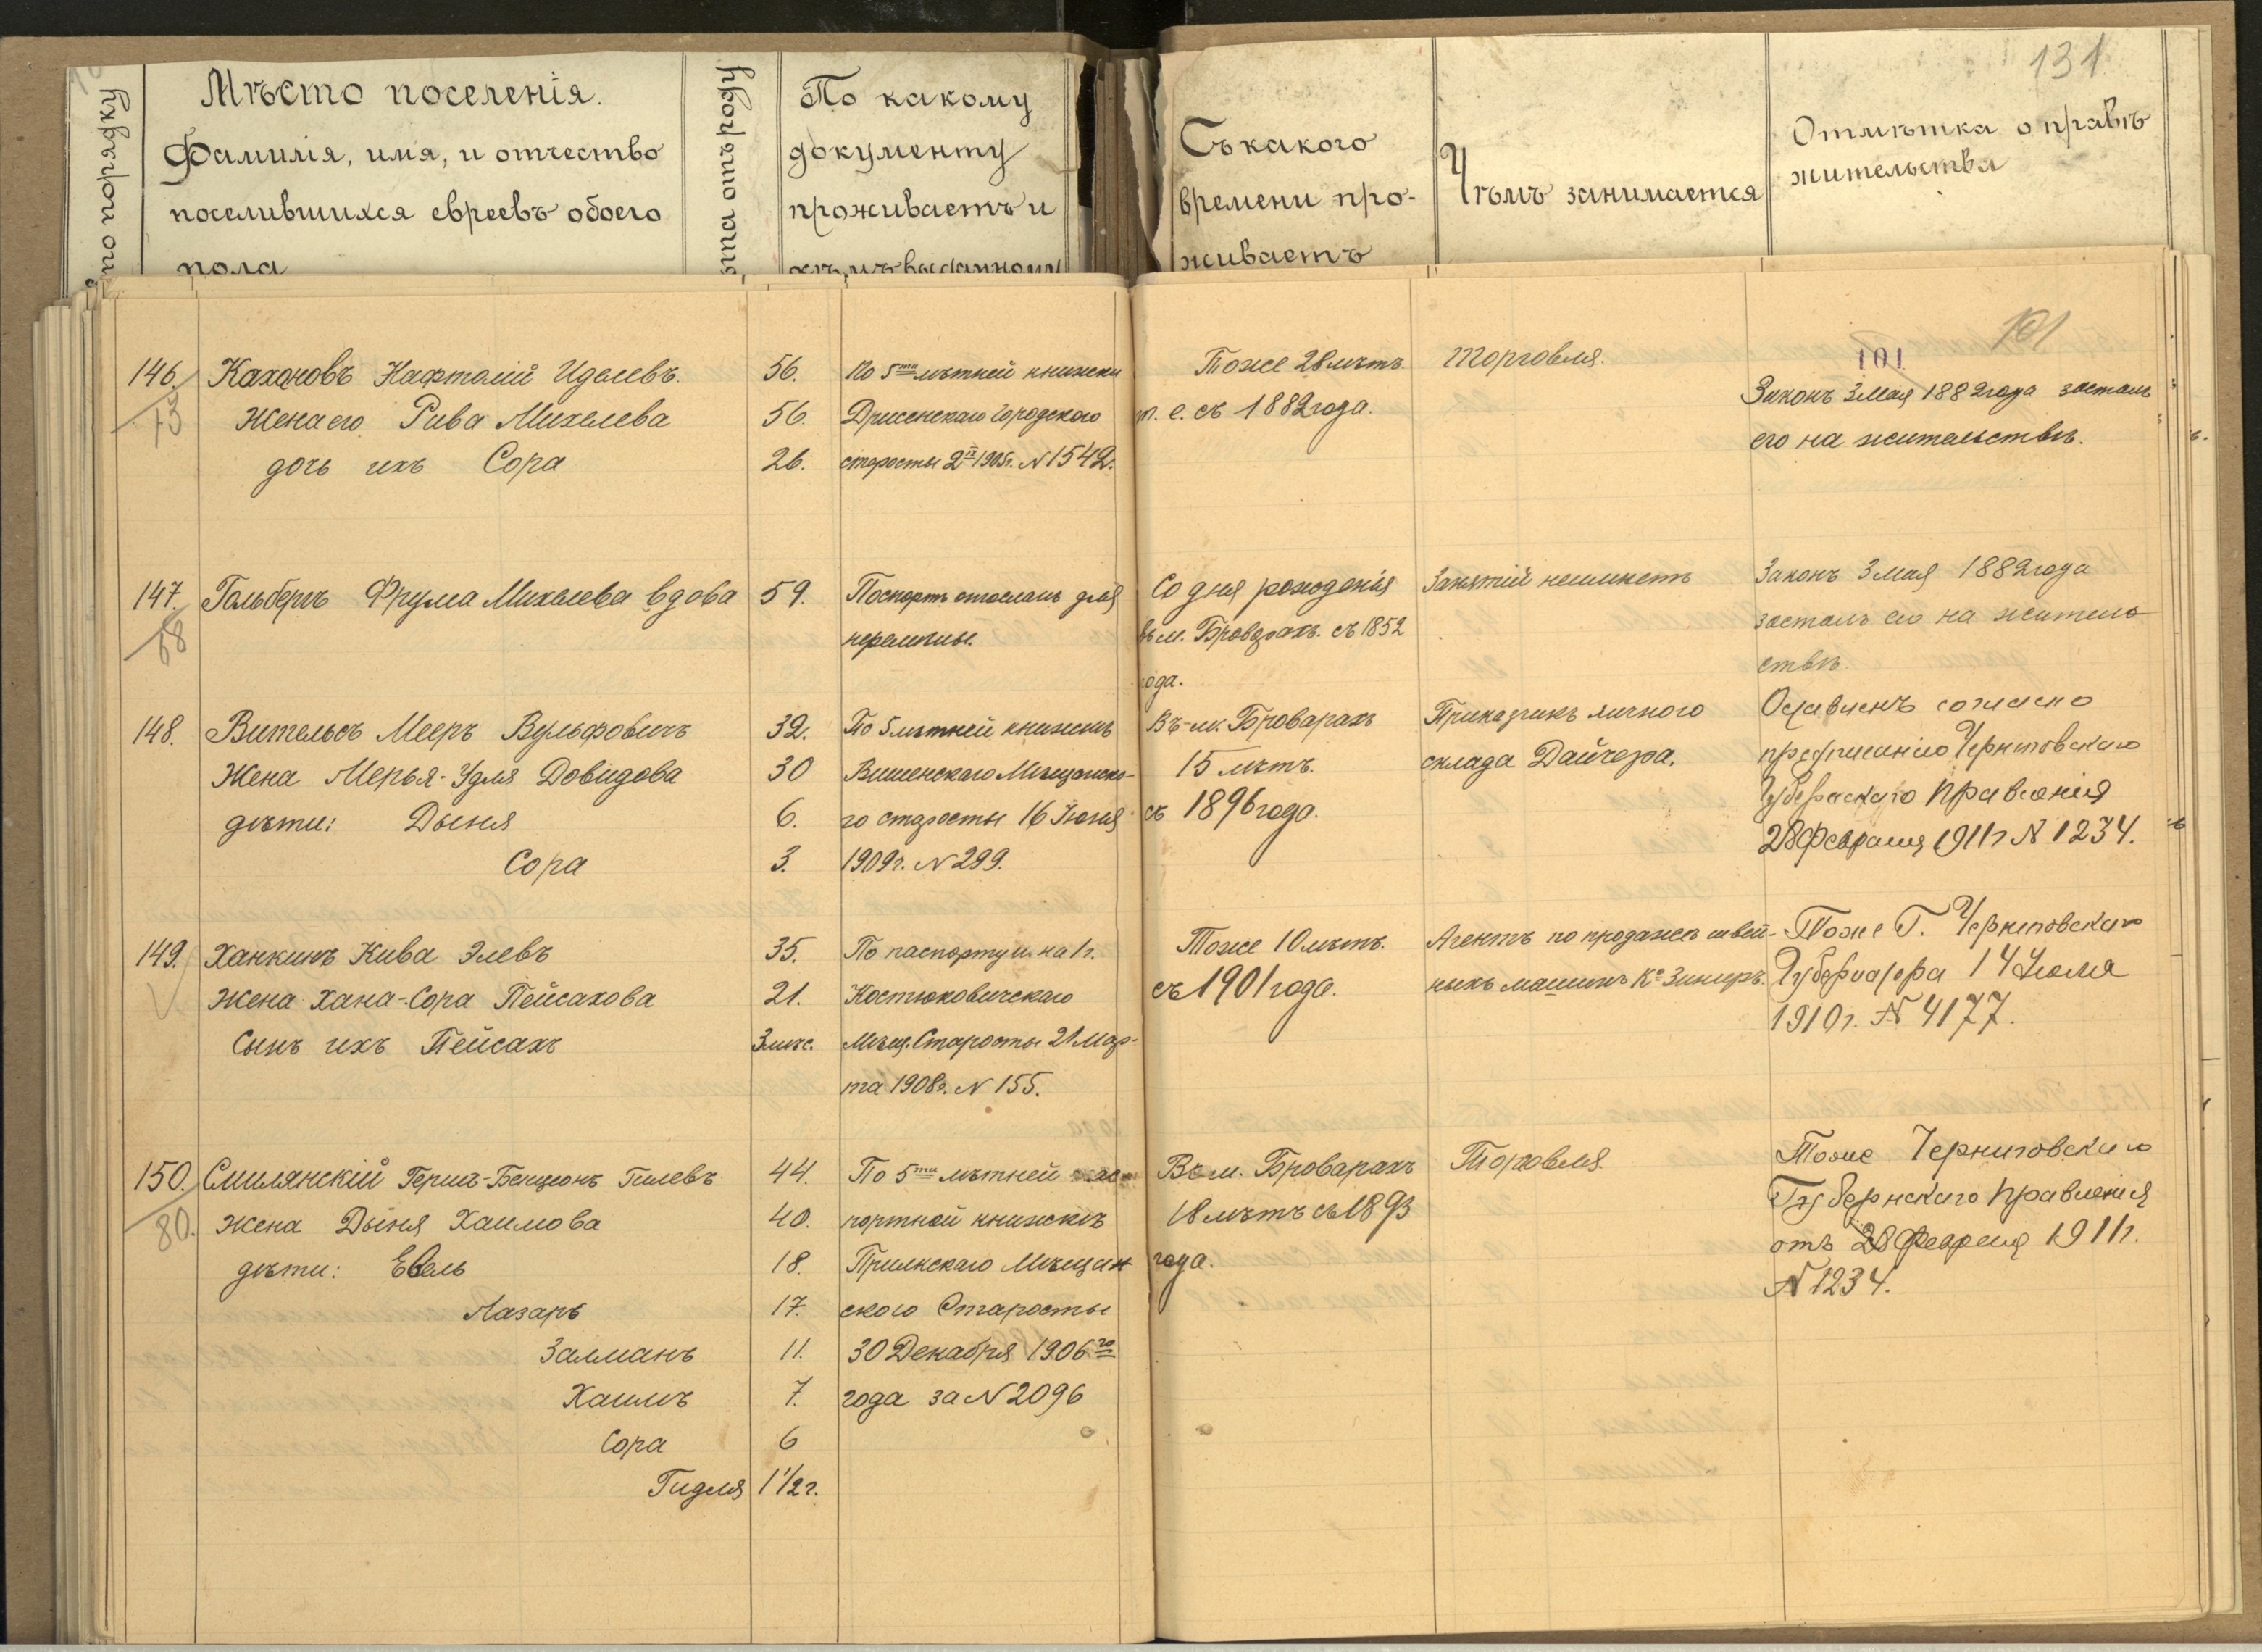 131
по порядку
Мѣсто поселенія.
Фамилія, имя, и отчество
поселившихся евреевъ обоего
пола
ѣта отъ роду
По какому
документу
проживаетъ и
кѣмъ выданному
Съ какого
времени про-
живаетъ
Чѣмъ занимается
Отмѣтка о правѣ
жительства
101
101
146.
73
Кахановъ Нафталій Иделевъ.
56.
По 5ти лѣтней книжки
Тоже 28 лѣтъ.
Торговля.
Законъ 3 мая 1882 года засталъ
Жена его Рива Михелева
56.
Дрисенскаго Городского
т. е. съ 1882 года.
его на жительствѣ.
дочь ихъ Сора
26.
старосты 2 IX 1905г. N 1542.
147.
68
Гольбергъ Фрума Михелева вдова
59.
Паспортъ отосланъ для
перемѣны.
Со дня рожденія
въ м. Броварахъ. съ 1852
года.
Занятій неимѣетъ
Законъ 3 мая 1882 года
засталъ ею на житель
ствѣ.
148.
Вительсъ Мееръ Вульфовичъ
32.
По 5 лѣтней книжкѣ
Въ м. Броварахъ
Приказчикъ яичного
Оставленъ согласно
Жена Мерья-Удля Довидова
30
Мѣщанско-
15 лѣтъ.
склада Дайчера.
предписанію Черниговскаго
дѣти: Дыня
6.
го старосты 16 Іюня
съ 1896 года.
Губернскаго Правленія
Сора
3.
1909г. N 299.
28 Февраля 1911г N 1234.
149.
Ханкинъ Кива Элевъ
35.
По паспорту на 1г.
Тоже 10 лѣтъ.
Агентъ по продажѣ швей-
Тоже Г. Черниговскаго
Жена Хана-Сора Пейсахова
21.
Костюковичскаго
съ 1901 года.
ныхъ машинъ Ко Зингеръ.
Губернатора 14 Іюля
Сынъ ихъ Пейсахъ
3 мѣс.
Мѣщ. Старосты 21 Мар-
1910г. N 4177.
та 1908г. N 155.
150.
80.
Смилянскій Гершъ-Бенціонъ Гилевъ
44.
По 5ти лѣтней пас-
Въ м. Броварахъ
Торговля.
Тоже Черниговскаго
жена Дыня Хаимова
40.
портной книжкѣ
18 лѣтъ съ 1893
Губернскаго Правленія
дѣти: Евель
18.
Мѣщан
года.
отъ 28 Февраля 1911г.
Лазарь
17.
ского Старосты
N 1234.
Залманъ
11.
30 Декабря 1906го
Хаимъ
7.
года за N 2096
Сора
6
Гидля
1 1/2 г.